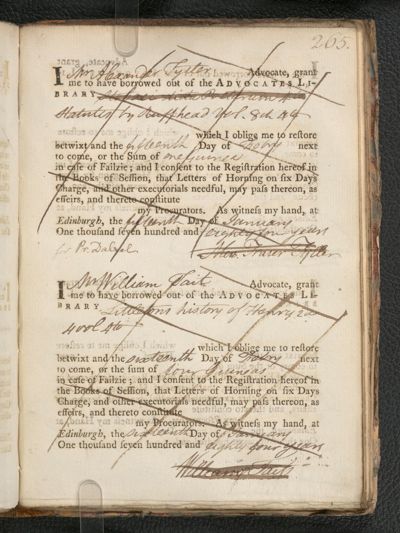 265.
I Mr Alexander Tytler Advocate, grant
me to have borrowed out of the ADVOCATES LI-
BRARY
Statutes by Ruffhead Vol. 8th 4to
which I oblige me to reſtore
betwixt and the fifteenth Day of Febry next
to come, or the Sum of one guinea
in caſe of Failzie; and I conſent to the Regiſtration hereof in
the Books of Seſſion, that Letters of Horning on ſix Days
Charge, and other executorials needful, may paſs thereon, as
effeirs, and thereto conſtitute
my Procurators. As witneſs my hand, at
Edinburgh, the fifteenth Day of January
One thouſand ſeven hundred and eighty four years
for Pr. Dalzel Alex. Fraser Tytler
I Mr William Tait Advocate, grant
me to have borrowed out of the ADVOCATES LI-
BRARY Littletons history of Henry 2d
4 vol 4to
which I oblige me to reſtore
betwixt and the sixteenth Day of Febry next
to come, or the sum of four Guineas
in caſe of Failzie; and I conſent to the Regiſtration hereof in
the Books of Seſſion, that Letters of Horning on ſix Days
Charge, and other executorials needful, may paſs thereon, as
effeirs, and thereto conſtitute
my Procurators. As witneſs my hand, at
Edinburgh, the sixteenth Day of January
One thouſand ſeven hundred and eighty four years
William Tait